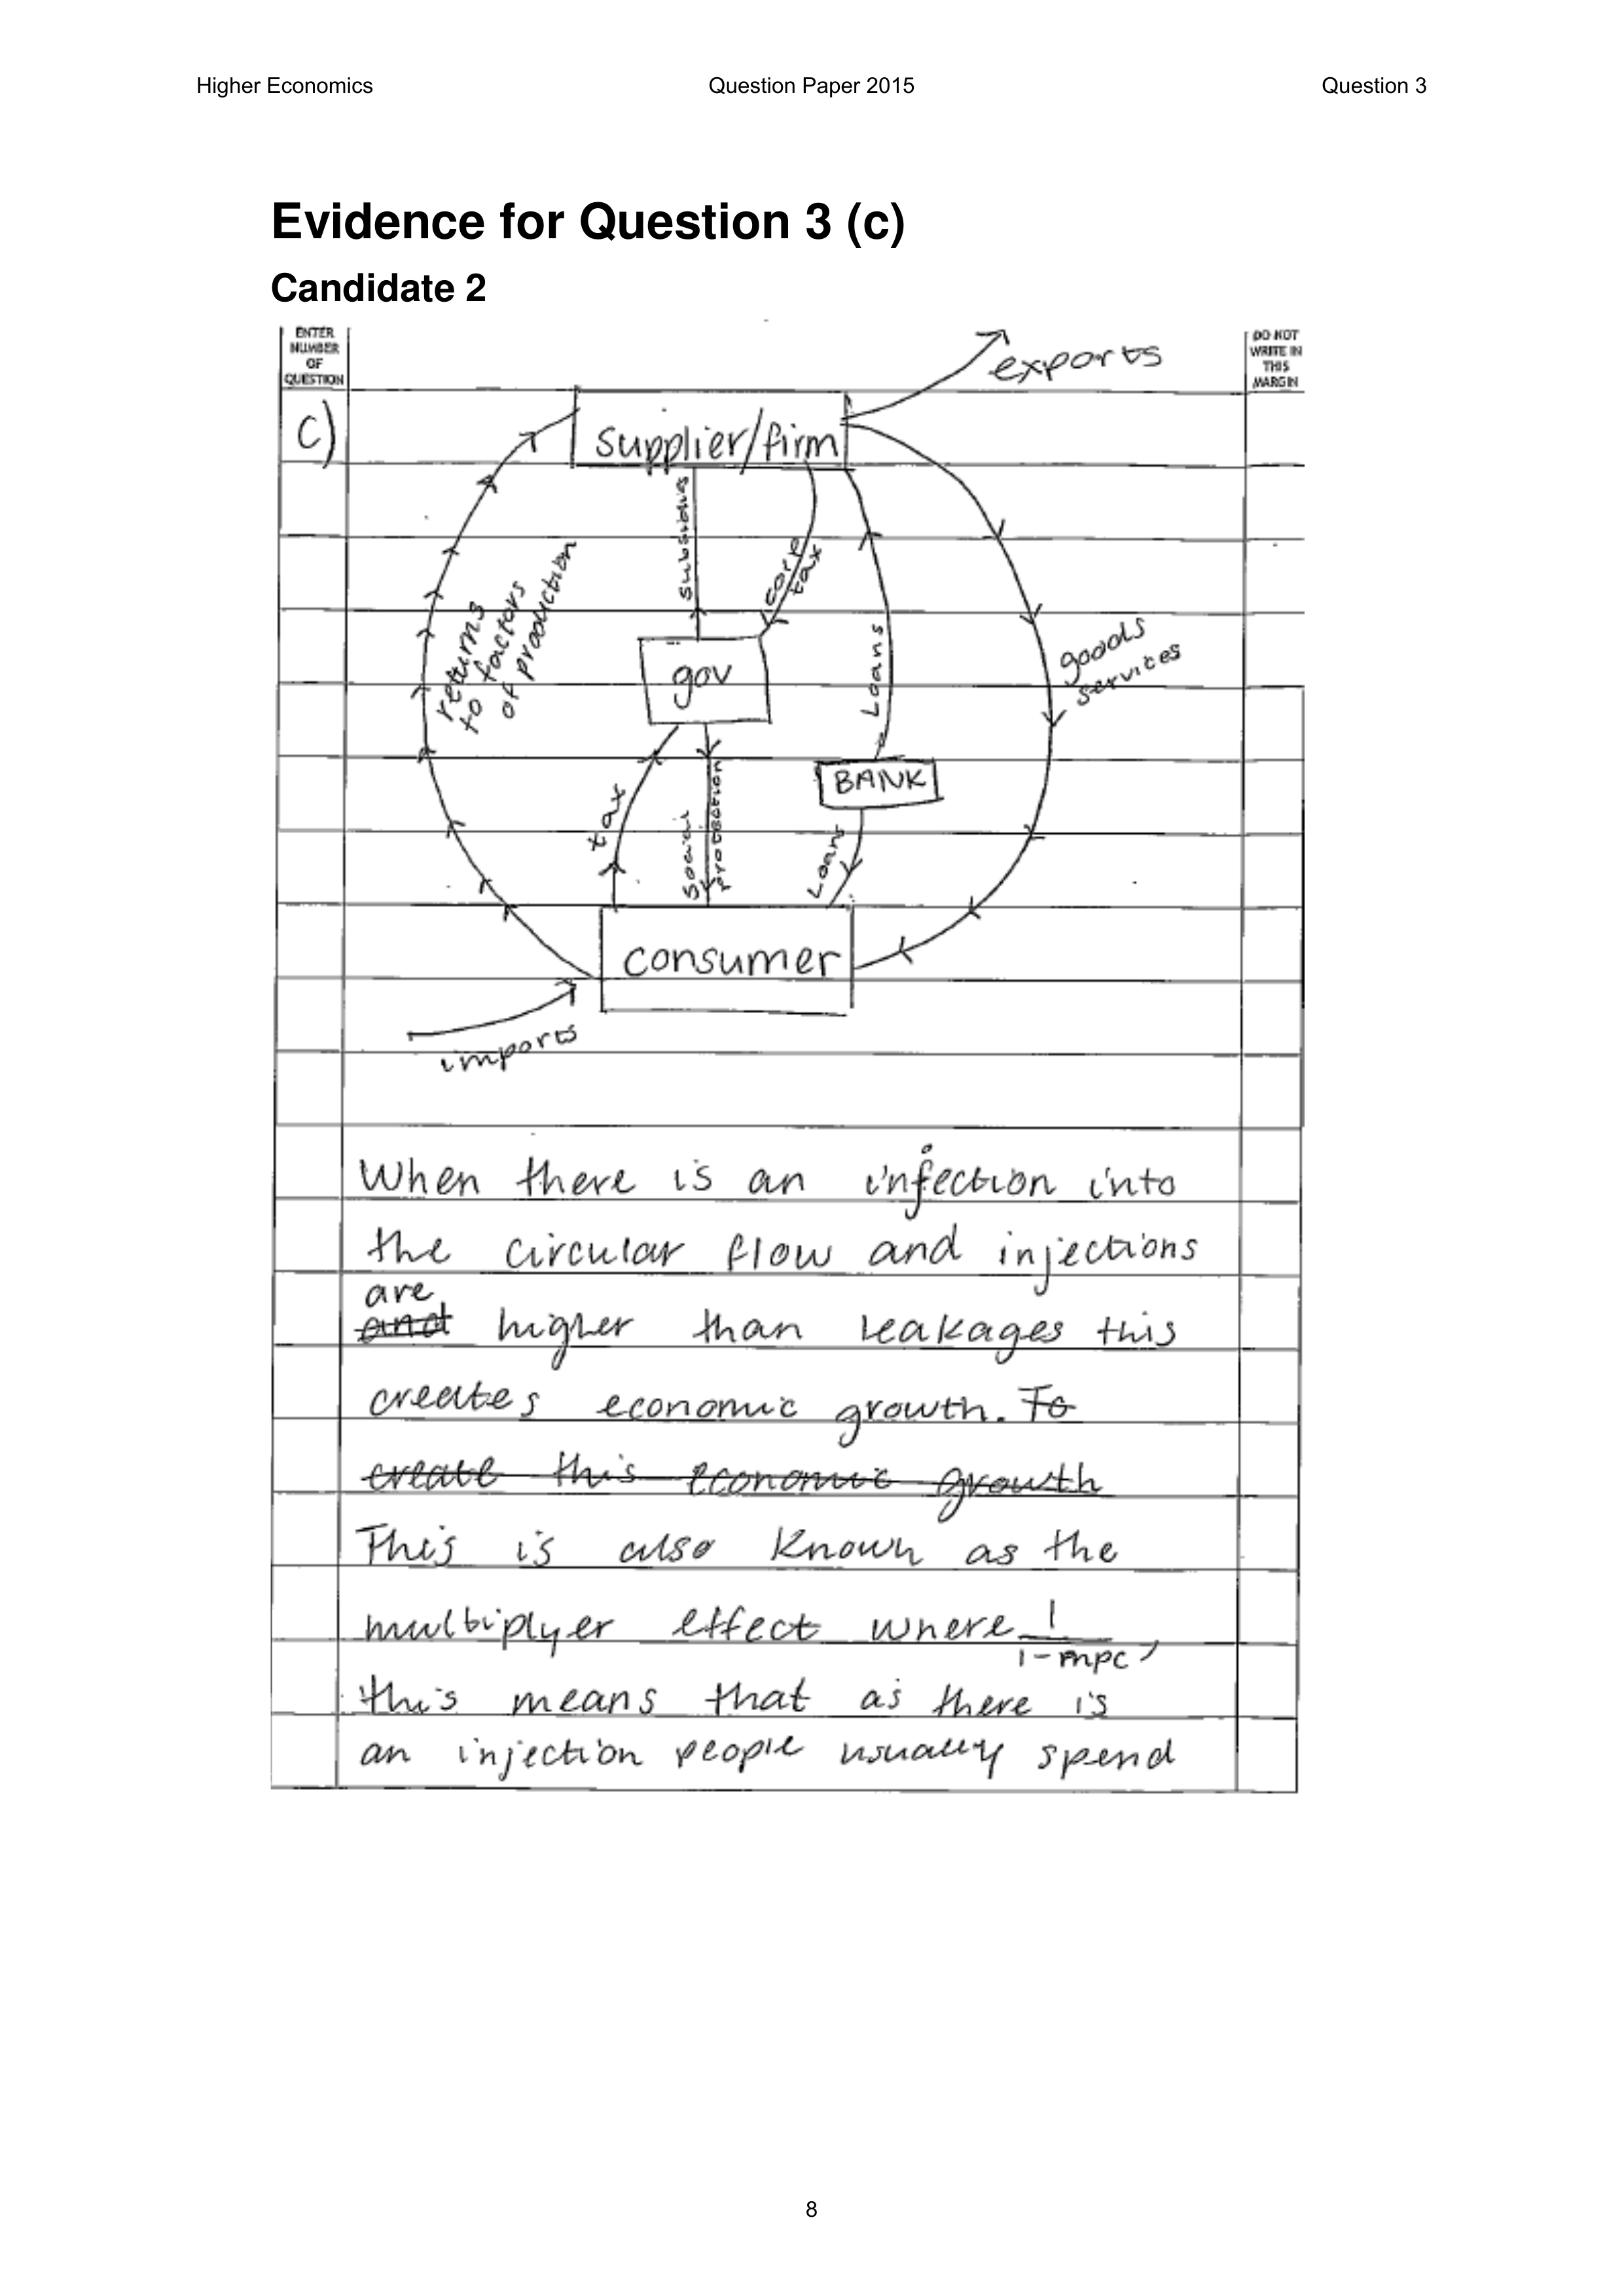 Higher Economics Question Paper 2015 Question 3
Evidence for Question 3 (c)
Candidate 2
ENTER
NUMBER
OF
QUESTION
DO NOT
WRITE IN
THIS
MARGIN
exports
c)
supplier/firm
subsidies
corp
tax
returns
to factors
of production
goods
services
Loans
gov
BANK
tax
social
protection
Loans
consumer
imports
When there is an injection into
the circular flow and injections
are
and higher than leakages this
creates economic growth. To
create this economic growth
This is also known as the
multiplyer effect where 1/1-mpc,
this means that as there is
an injection people usually spend
8